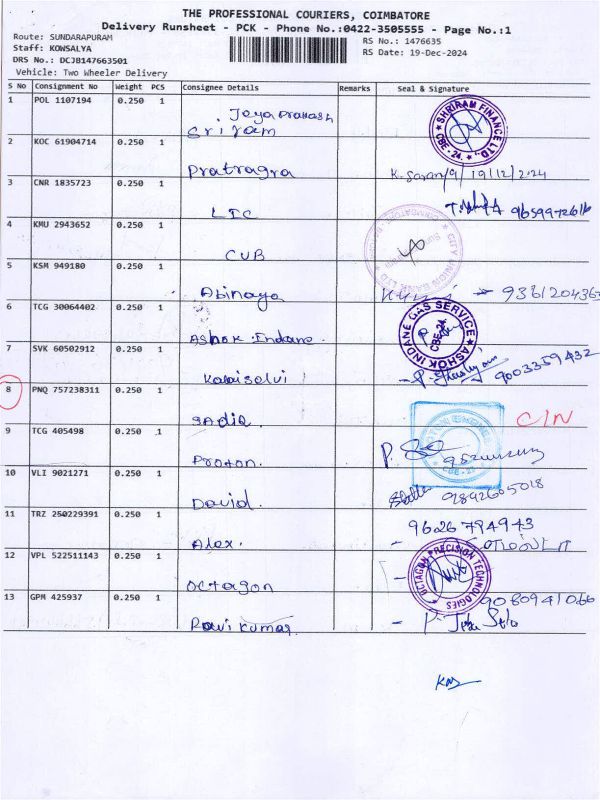 THE PROFESSIONAL COURIERS, COIMBATORE
Delivery Runsheet - PCK - Phone No.:0422-3505555 - Page No.:1
Route: SUNDARAPURAM
RS No.: 1476635
Staff: KOWSALYA
RS Date: 19-Dec-2024
DRS No.: DCJB147663501
Vehicle: Two Wheeler Delivery
S No Consignment No Weight PCS Consignee Details Remarks Seal & Signature
1 POL 1107194 0.250 1 Jeyaprakash
Sriram SHRIRAM FINANCE LTD. CBE-24.
2 KOC 61904714 0.250 1
Pratragra 19/12/2024
3 CNR 1835723 0.250 1
LIC
4 KMU 2943652 0.250 1
CUB CITY UNION BANK LTD
5 KSM 949180 0.250 1
Abinaya
6 TCG 30064402 0.250 1
Ashok Indane. ASHOK INDANE GAS SERVICE CBE-24.
7 SVK 60502912 0.250 1
Kalaiselvi 9003359432
8 PNQ 757238311 0.250 1 C/N
Sadiq
9 TCG 405498 0.250 1
Proton.
10 VLI 9021271 0.250 1
David.
11 TRZ 250229391 0.250 1 9626794943
Alex.
12 VPL 522511143 0.250 1
Octagon OCTAGON PRECISION TECHNOLOGIES
13 GPM 425937 0.250 1 9080941066
Ravi kumar